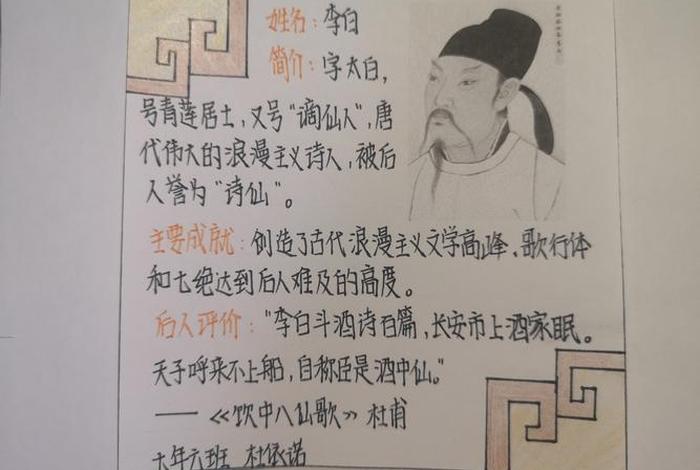 姓名：李白
简介：字太白，
号青莲居士，又号“谪仙人”，唐
代伟大的浪漫主义诗人，被后
人誉为“诗仙”。
主要成就：创造了古代浪漫主义文学高峰、歌行体
和七绝达到后人难及的高度。
后人评价：“李白斗酒诗百篇，长安市上酒家眠。
天子呼来不上船，自称臣是酒中仙。”
——《饮中八仙歌》杜甫
六年六班 杜依诺